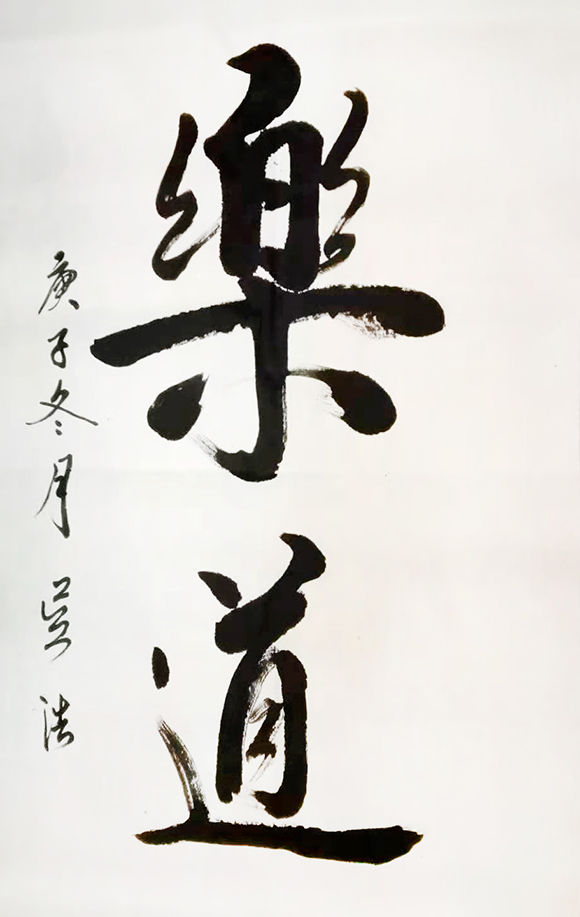 樂道
庚子冬月吴浩